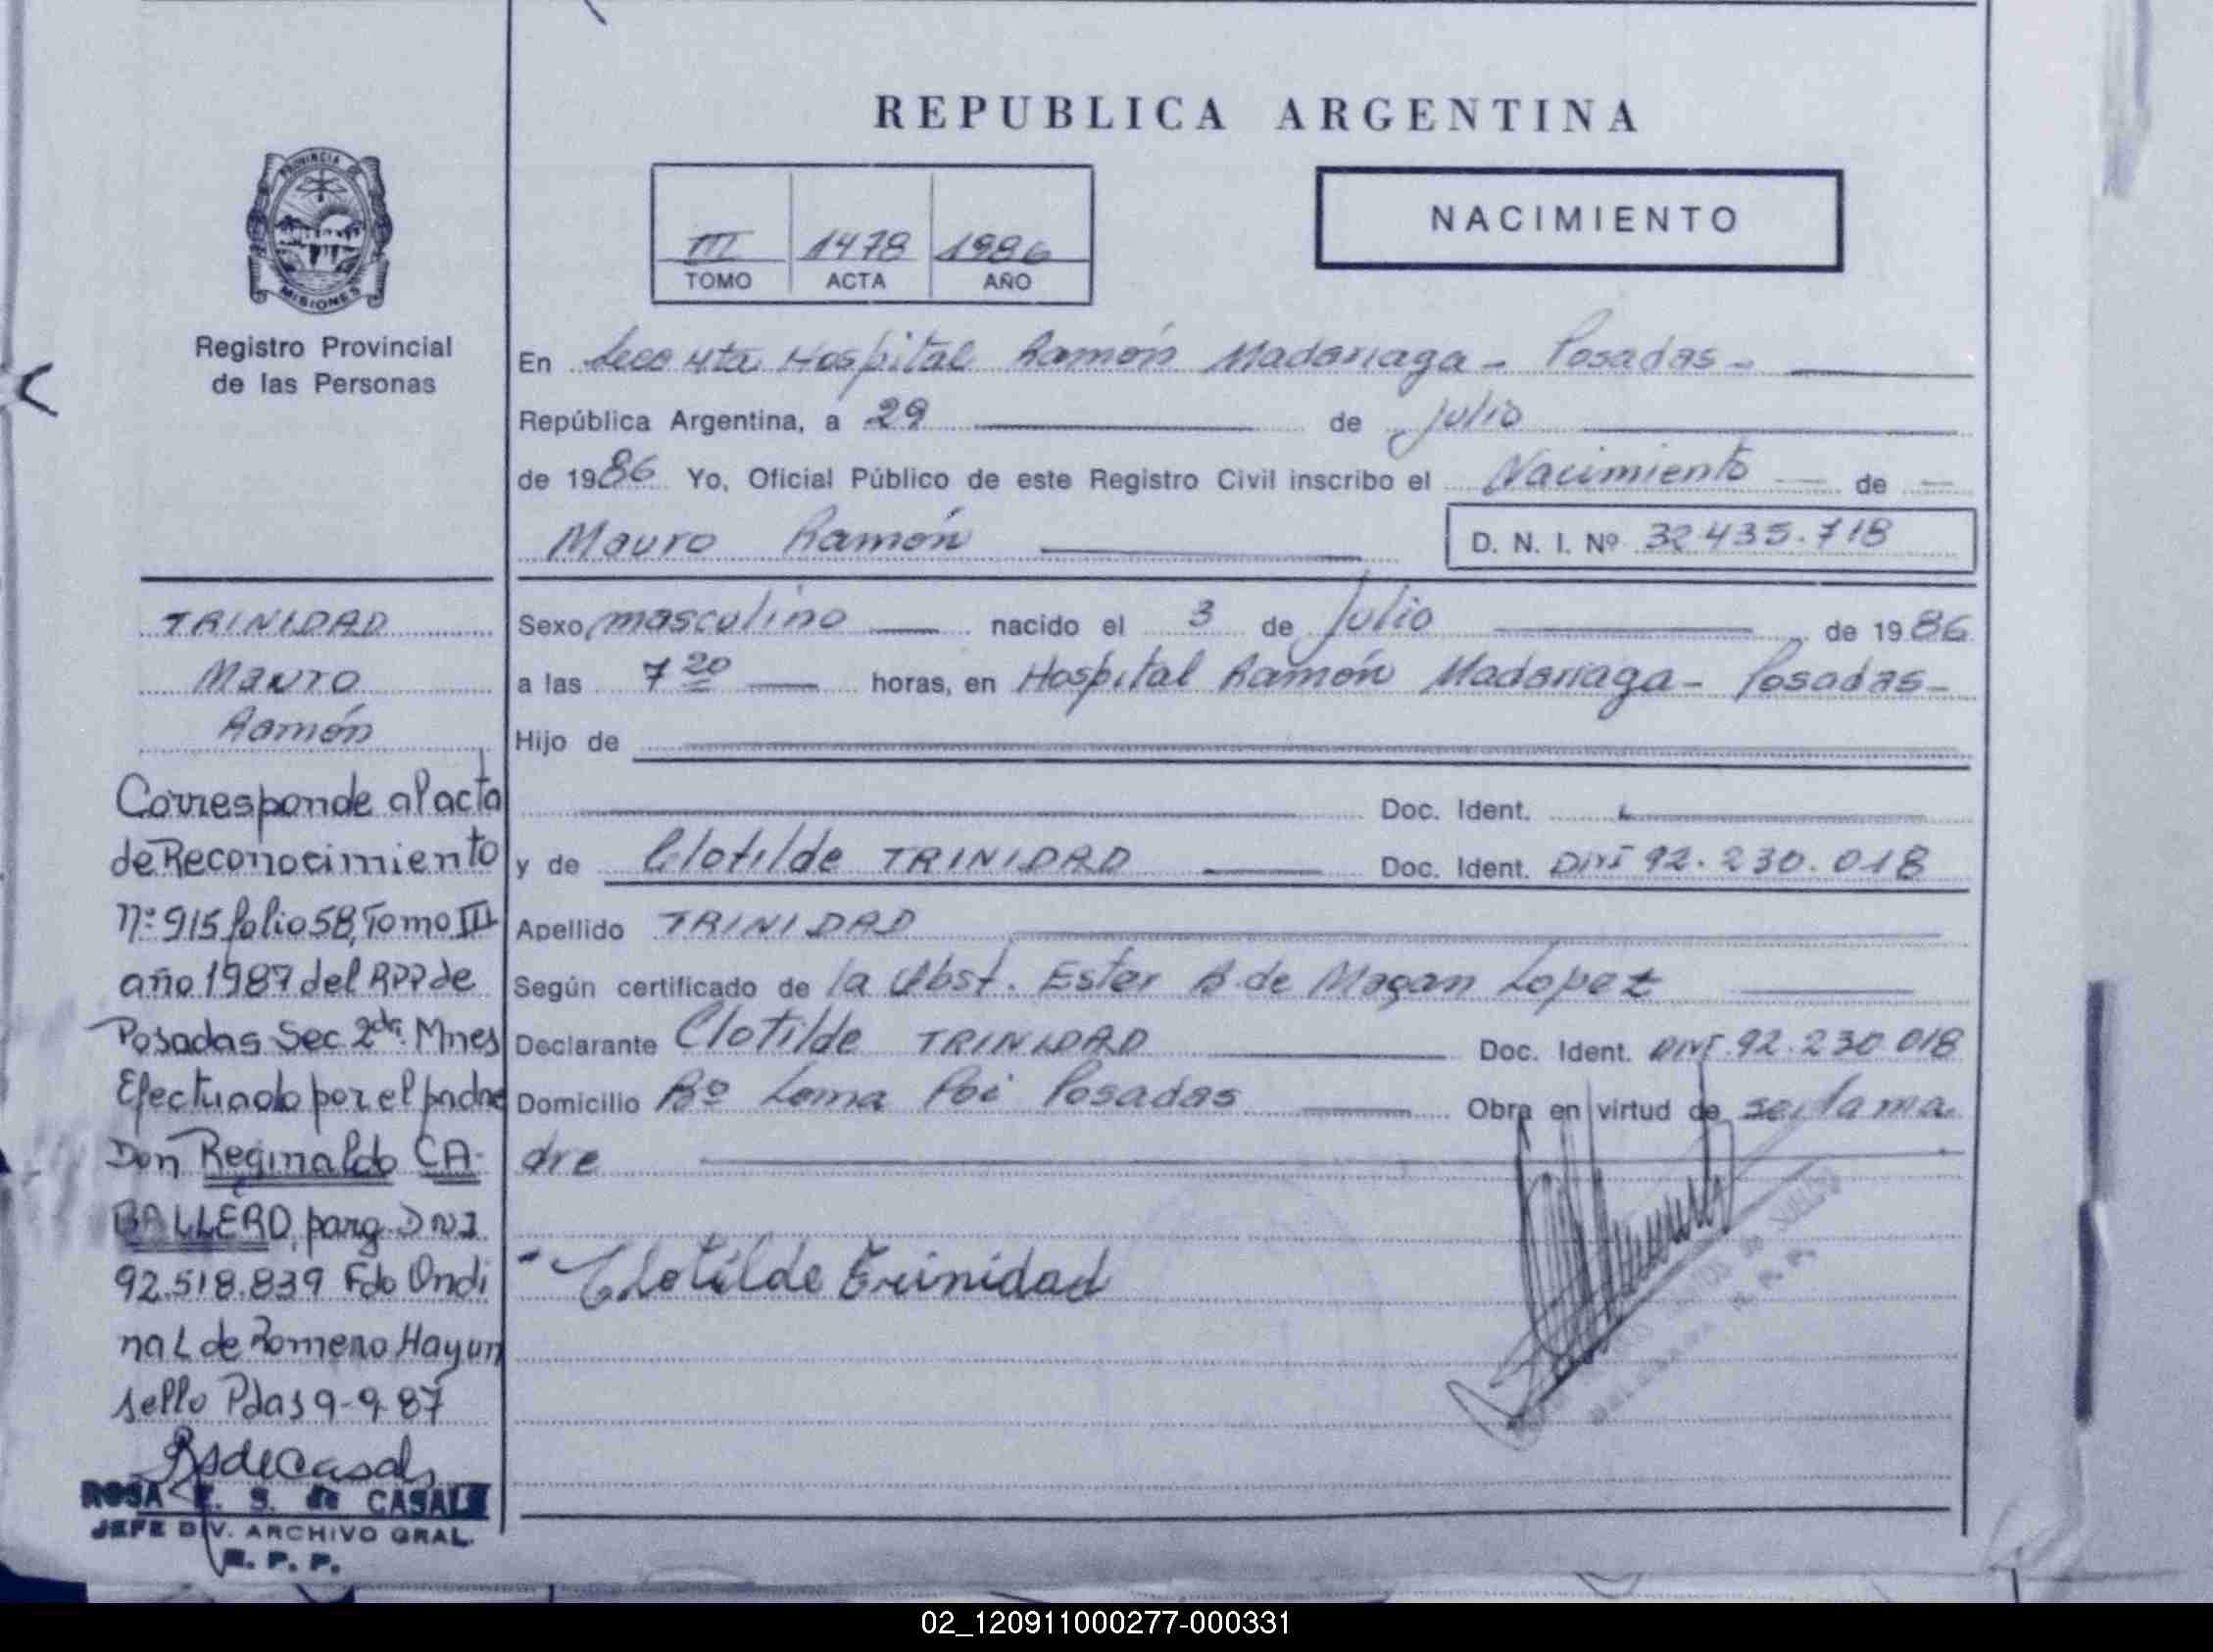 REPUBLICA ARGENTINA
PROVINCIA DE
MISIONES
Registro Provincial
de las Personas
III 1478 1986
TOMO ACTA AÑO
NACIMIENTO
En Secc 4ta Hospital Ramón Madariaga - Posadas -
República Argentina, a 29 de Julio
de 1986 Yo, Oficial Público de este Registro Civil inscribo el Nacimiento de
Mauro Ramón
D. N. I. Nº 32.435.718
TRINIDAD
Mauro
Ramón
Corresponde al acta
de Reconocimiento
Nº 915 folio 58, Tomo III
año 1987 del RPP de
Posadas Sec 2da. Mnes
Efectuado por el padre
Don Reginaldo CA-
BALLERO, parg. DNI
92.518.839 Fdo Ondi
na L de Romero Hay un
sello Pdas 9-9-87
ROSA E. S. de CASALS
JEFE DIV. ARCHIVO GRAL.
R. P. P.
Sexo masculino nacido el 3 de Julio de 1986
a las 7 20 horas, en Hospital Ramón Madariaga - Posadas -
Hijo de
Doc. Ident.
y de Clotilde TRINIDAD Doc. Ident. DNI 92.230.018
Apellido TRINIDAD
Según certificado de la Obst. Ester B de Magan Lopez
Declarante Clotilde TRINIDAD Doc. Ident. DNI.92.230.018
Domicilio Bº Loma Poi Posadas Obra en virtud de ser la ma
dre
Clotilde Trinidad
02_120911000277-000331